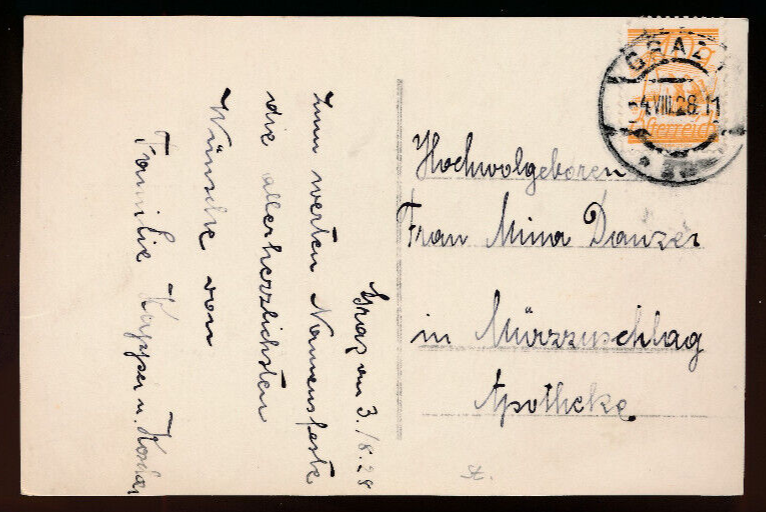 Graz am 3./8.28
Zum werten Namensfeste
die allerherzlichsten
Wünsche von
Familie Kappper u.
Hochwolgeboren
Frau Mina Danzer
in Mürzzuschlag
Apotheke
GRAZ
4.VIII.28.11
St.